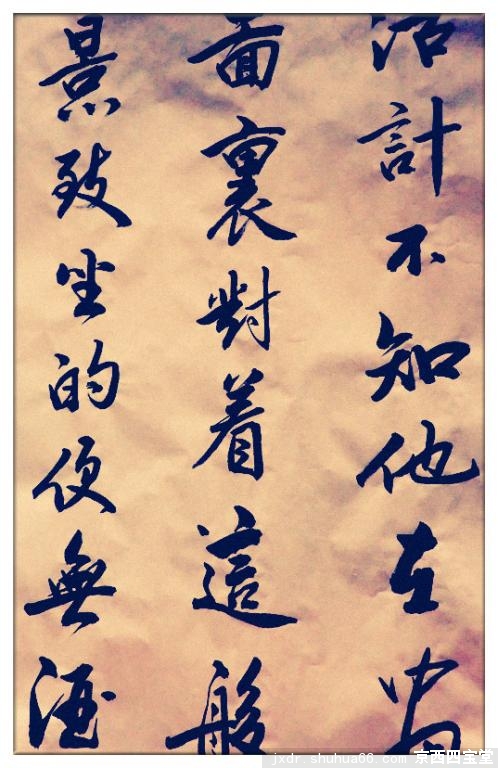 活計不知他在
面裏對着這般
景致坐的便無酒
jxdr.shuhua66.com 京西四宝堂